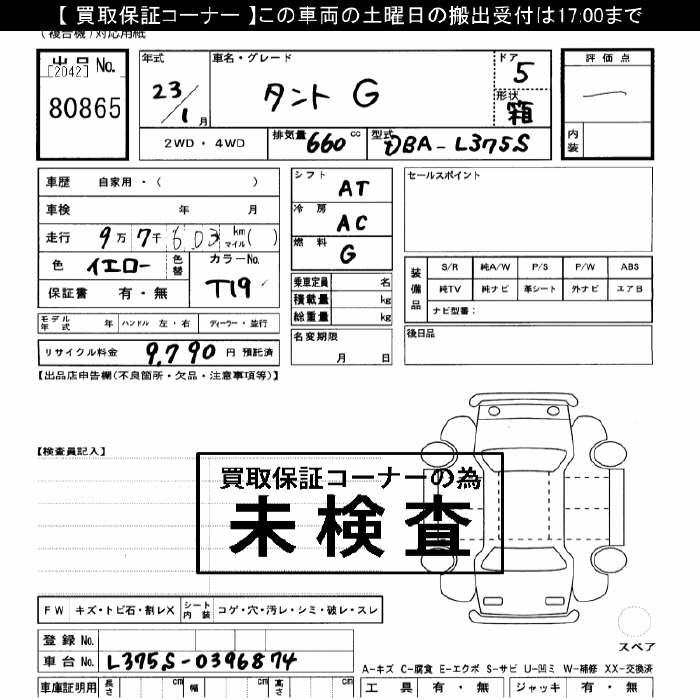 【 買取保証コーナー 】この車両の土曜日の搬出受付は17:00まで
(複合機)対応用紙
出品 No.
[2042]
80865
年式
23/1月
車名・グレード
タント G
ドア
5
形状
箱
評価点
内装
2WD・4WD
排気量 660 cc
型式 DBA-L375S
車歴 自家用・( )
車検 年 月
走行 9万7千603 km マイル( )
色 イエロー
色替
カラーNo.
T19
保証書 有・無
シフト
AT
冷房
AC
燃料
G
乗車定員 名
積載量 kg
総重量 kg
セールスポイント
装備品
S/R 純A/W P/S P/W ABS
純TV 純ナビ 革シート 外ナビ エアB
ナビ型番:
モデル年式 年 ハンドル 左・右 ディーラー・並行
名変期限
月 日
後日品
リサイクル料金 9,790 円 預託済
【出品店申告欄(不良箇所・欠品・注意事項等)】
【検査員記入】
買取保証コーナーの為
未検査
FW キズ・トビ石・割レX
シート内装 コゲ・穴・汚レ・シミ・破レ・スレ
登録 No.
車台 No. L375S-0396874
スペア
A-キズ C-腐食 E-エクボ S-サビ U-凹ミ W-補修 XX-交換済
車庫証明用 長さ cm 幅 cm 高さ cm
工具 有・無 ジャッキ 有・無